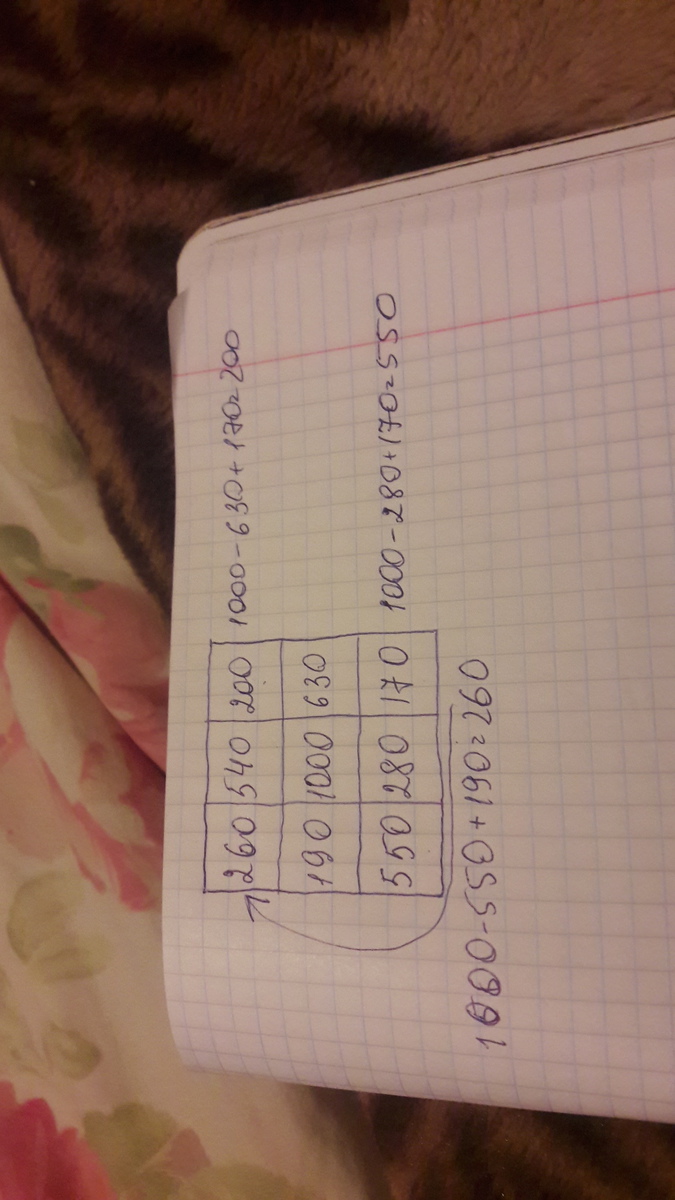 260 540 200 1000-630+170=200
190 1000 630
550 280 170 1000-280+170=550
1000-550+190=260